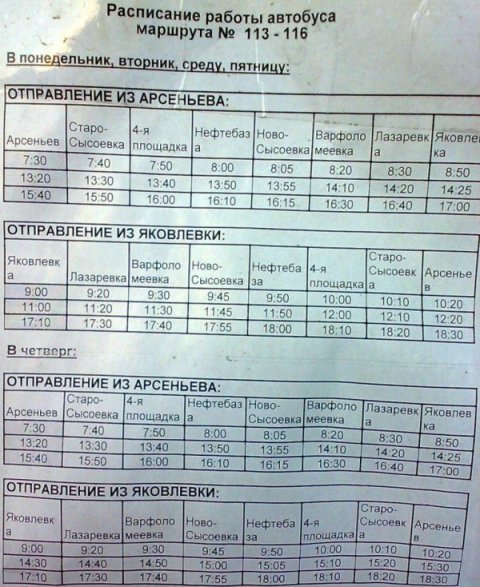 Расписание работы автобуса
маршрута № 113 - 116
В понедельник, вторник, среду, пятницу:
ОТПРАВЛЕНИЕ ИЗ АРСЕНЬЕВА:
Арсеньев Старо-Сысоевка 4-я площадка Нефтебаза Ново-Сысоевка Варфоломеевка Лазаревка Яковлевка
7:30 7:40 7:50 8:00 8:05 8:20 8:30 8:50
13:20 13:30 13:40 13:50 13:55 14:10 14:20 14:25
15:40 15:50 16:00 16:10 16:15 16:30 16:40 17:00
ОТПРАВЛЕНИЕ ИЗ ЯКОВЛЕВКИ:
Яковлевка Лазаревка Варфоломеевка Ново-Сысоевка Нефтебаза 4-я площадка Старо-Сысоевка Арсеньев
9:00 9:20 9:30 9:45 9:50 10:00 10:10 10:20
11:00 11:20 11:30 11:45 11:50 12:00 12:10 12:20
17:10 17:30 17:40 17:55 18:00 18:10 18:20 18:30
В четверг:
ОТПРАВЛЕНИЕ ИЗ АРСЕНЬЕВА:
Арсеньев Старо-Сысоевка 4-я площадка Нефтебаза Ново-Сысоевка Варфоломеевка Лазаревка Яковлевка
7:30 7:40 7:50 8:00 8:05 8:20 8:30 8:50
13:20 13:30 13:40 13:50 13:55 14:10 14:20 14:25
15:40 15:50 16:00 16:10 16:15 16:30 16:40 17:00
ОТПРАВЛЕНИЕ ИЗ ЯКОВЛЕВКИ:
Яковлевка Лазаревка Варфоломеевка Ново-Сысоевка Нефтебаза 4-я площадка Старо-Сысоевка Арсеньев
9:00 9:20 9:30 9:45 9:50 10:00 10:10 10:20
14:30 14:40 14:50 15:00 15:05 15:10 15:20 15:30
17:10 17:30 17:40 17:55 18:00 18:10 18:20 18:30